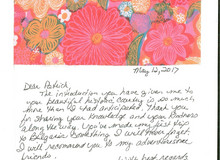 May 12, 2017
Dear Patrick,
The introduction you have given me to
your beautiful historic country is so much
more than I had anticipated. Thank you
for sharing your knowledge and your kindness
along the way. You've made your first trip
to Bulgaria something I will never forget.
I will recommend you to my adventuresome
friends.
with best regards